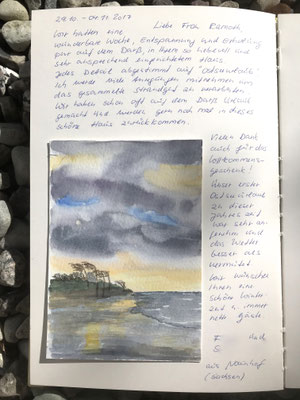 29.10. - 04.11.2017
Liebe Frau
wir hatten eine
wunderbare Woche, Entspannung und Erholung
pur auf dem Darß, in Ihrem so liebevoll und
sehr ansprechend eingerichteten Haus.
Jedes Detail abgestimmt auf "Ostseeurlaub"
Ich werde viele Anregungen mitnehmen, um
das gesammelte Strandgut zu verarbeiten.
Wir haben schon oft auf dem Darß Urlaub
gemacht und werden gern noch mal in dieses
schöne Haus zurückkommen.
Vielen Dank
auch für das
Willkommens-
geschenk!
Unser erster
Ostseeurlaub
zu dieser
Jahreszeit
war sehr an-
genehm und
das Wetter
besser als
vermutet.
Wir wünschen
Ihnen eine
schöne Winter-
zeit u. immer
nette Gäste.
F. und
S.
aus Naunhof
(Sachsen)